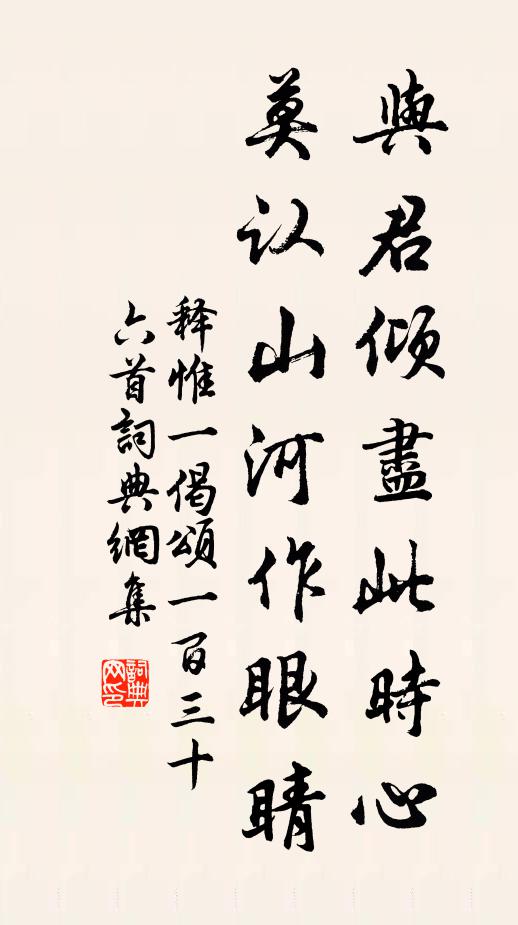 與君傾盡此時心
莫认山河作眼睛
释惟一偈頌一百三十
六首詞典網集
詞典网印